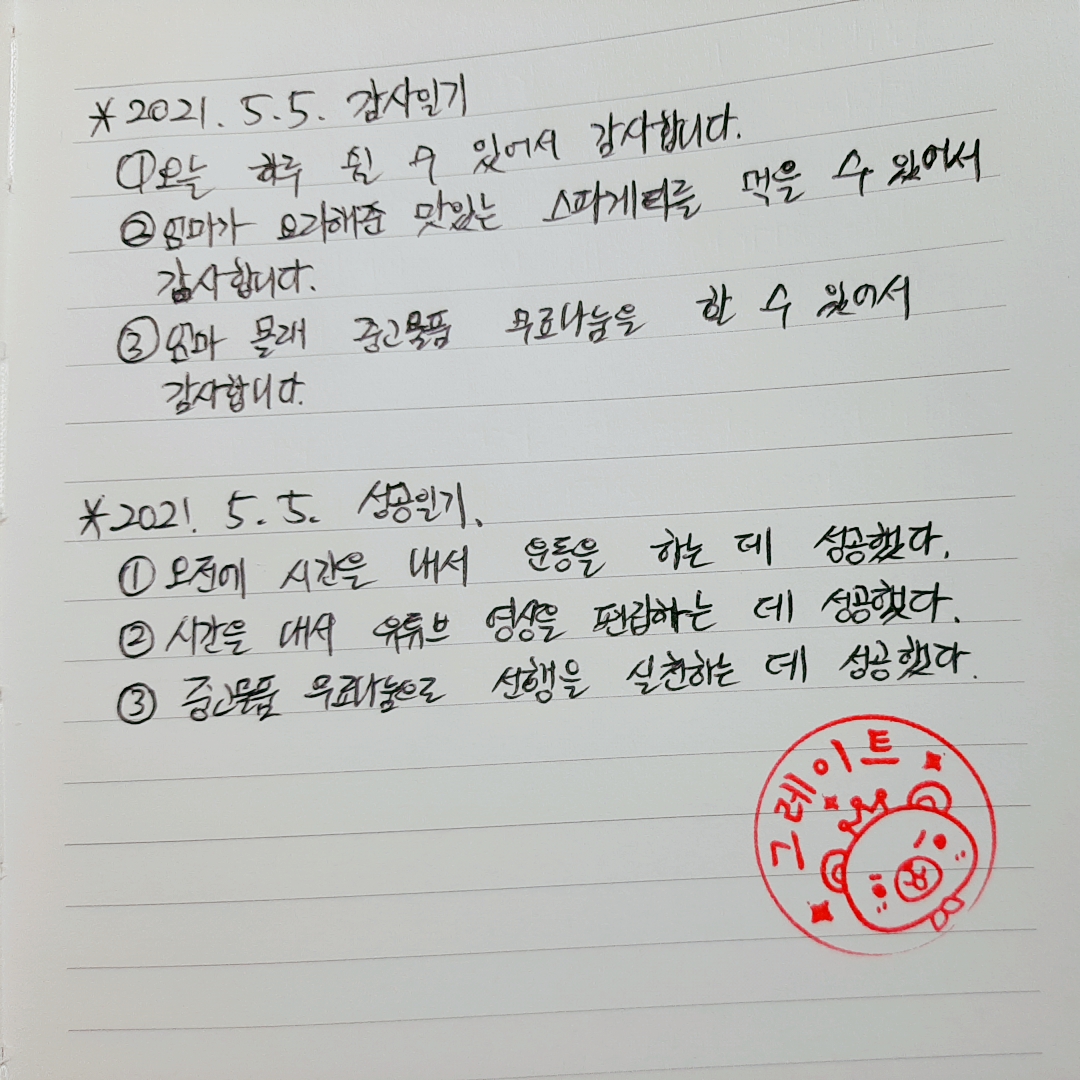 * 2021. 5.5. 감사일기
① 오늘 하루 쉴 수 있어서 감사합니다.
② 엄마가 요리해준 맛있는 스파게티를 먹을 수 있어서
감사합니다.
③ 엄마 몰래 중고물품 무료나눔을 할 수 있어서
감사합니다.
* 2021. 5.5. 성공일기.
① 오전에 시간을 내서 운동을 하는 데 성공했다.
② 시간을 내서 유튜브 영상을 편집하는 데 성공했다.
③ 중고물품 무료나눔으로 선행을 실천하는 데 성공했다.
그레이트